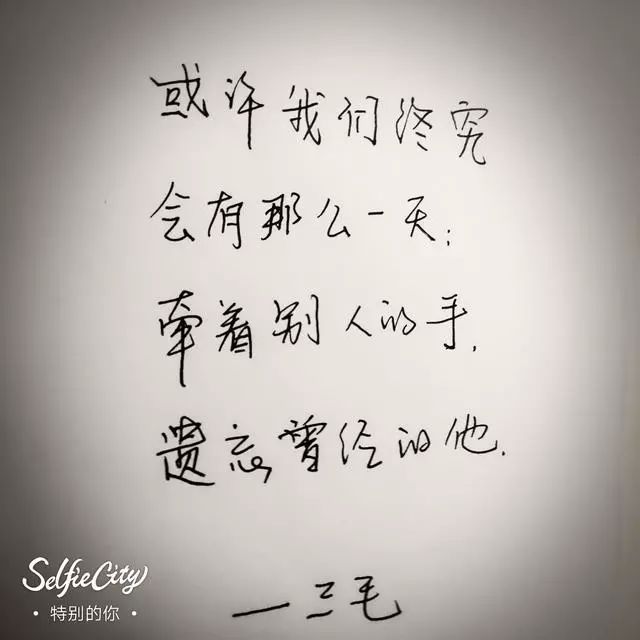 或许我们终究
会有那么一天:
牵着别人的手.
遗忘曾经的他.
—三毛
SelfieCity
·特别的你·